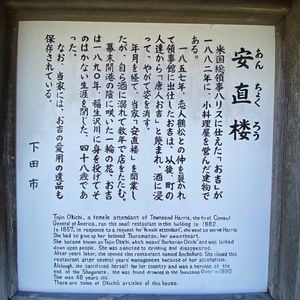 安直楼
あん ちょく ろう
米国総領事ハリスに仕えた「お吉」が
一八八二年に、小料理屋を営んだ建物で
す。
一八五七年、恋人鶴松との仲を裂かれ
て領事館に出仕したお吉は、以後、町の
人達から「唐人お吉」と蔑まれ、酒に浸
って、やがて姿を消す。
年月を経て、当家「安直楼」を開業し
たが、自ら酒に溺れて数年で店をたたむ。
幕末開港の陰に咲いた一輪の花、お吉
は一八九〇年、稲生沢川に身を投げてそ
のはかない生涯を閉じた。四十八歳であ
った。
なお、当家には、お吉の愛用の遺品も
保存されている。
下田市
Tojin Okichi, a female attendant of Townsend Harris, the first Consul
General of America, ran this small restaurant in this building in 1882.
In 1857, in response to a request for 'female attendant', she went to serve Harris
She had to give up her beloved Tsurumatsu, her sweetheart.
She became known as Tojin Okichi, which means 'Barbarian Okichi' and was looked
down upon people. She was addicted to drinking and disappeared.
After years later, she opened this restaurant named Anchokuro. She closed this
restaurant after several years management because of her alcoholism.
Although, she sacrificed herself for her country and was a heroine at the
end of the Shogunate, she was found drowned in the Inouzawa River in 1890
She was 48 years old.
There are some of Okichi's articles at this house.